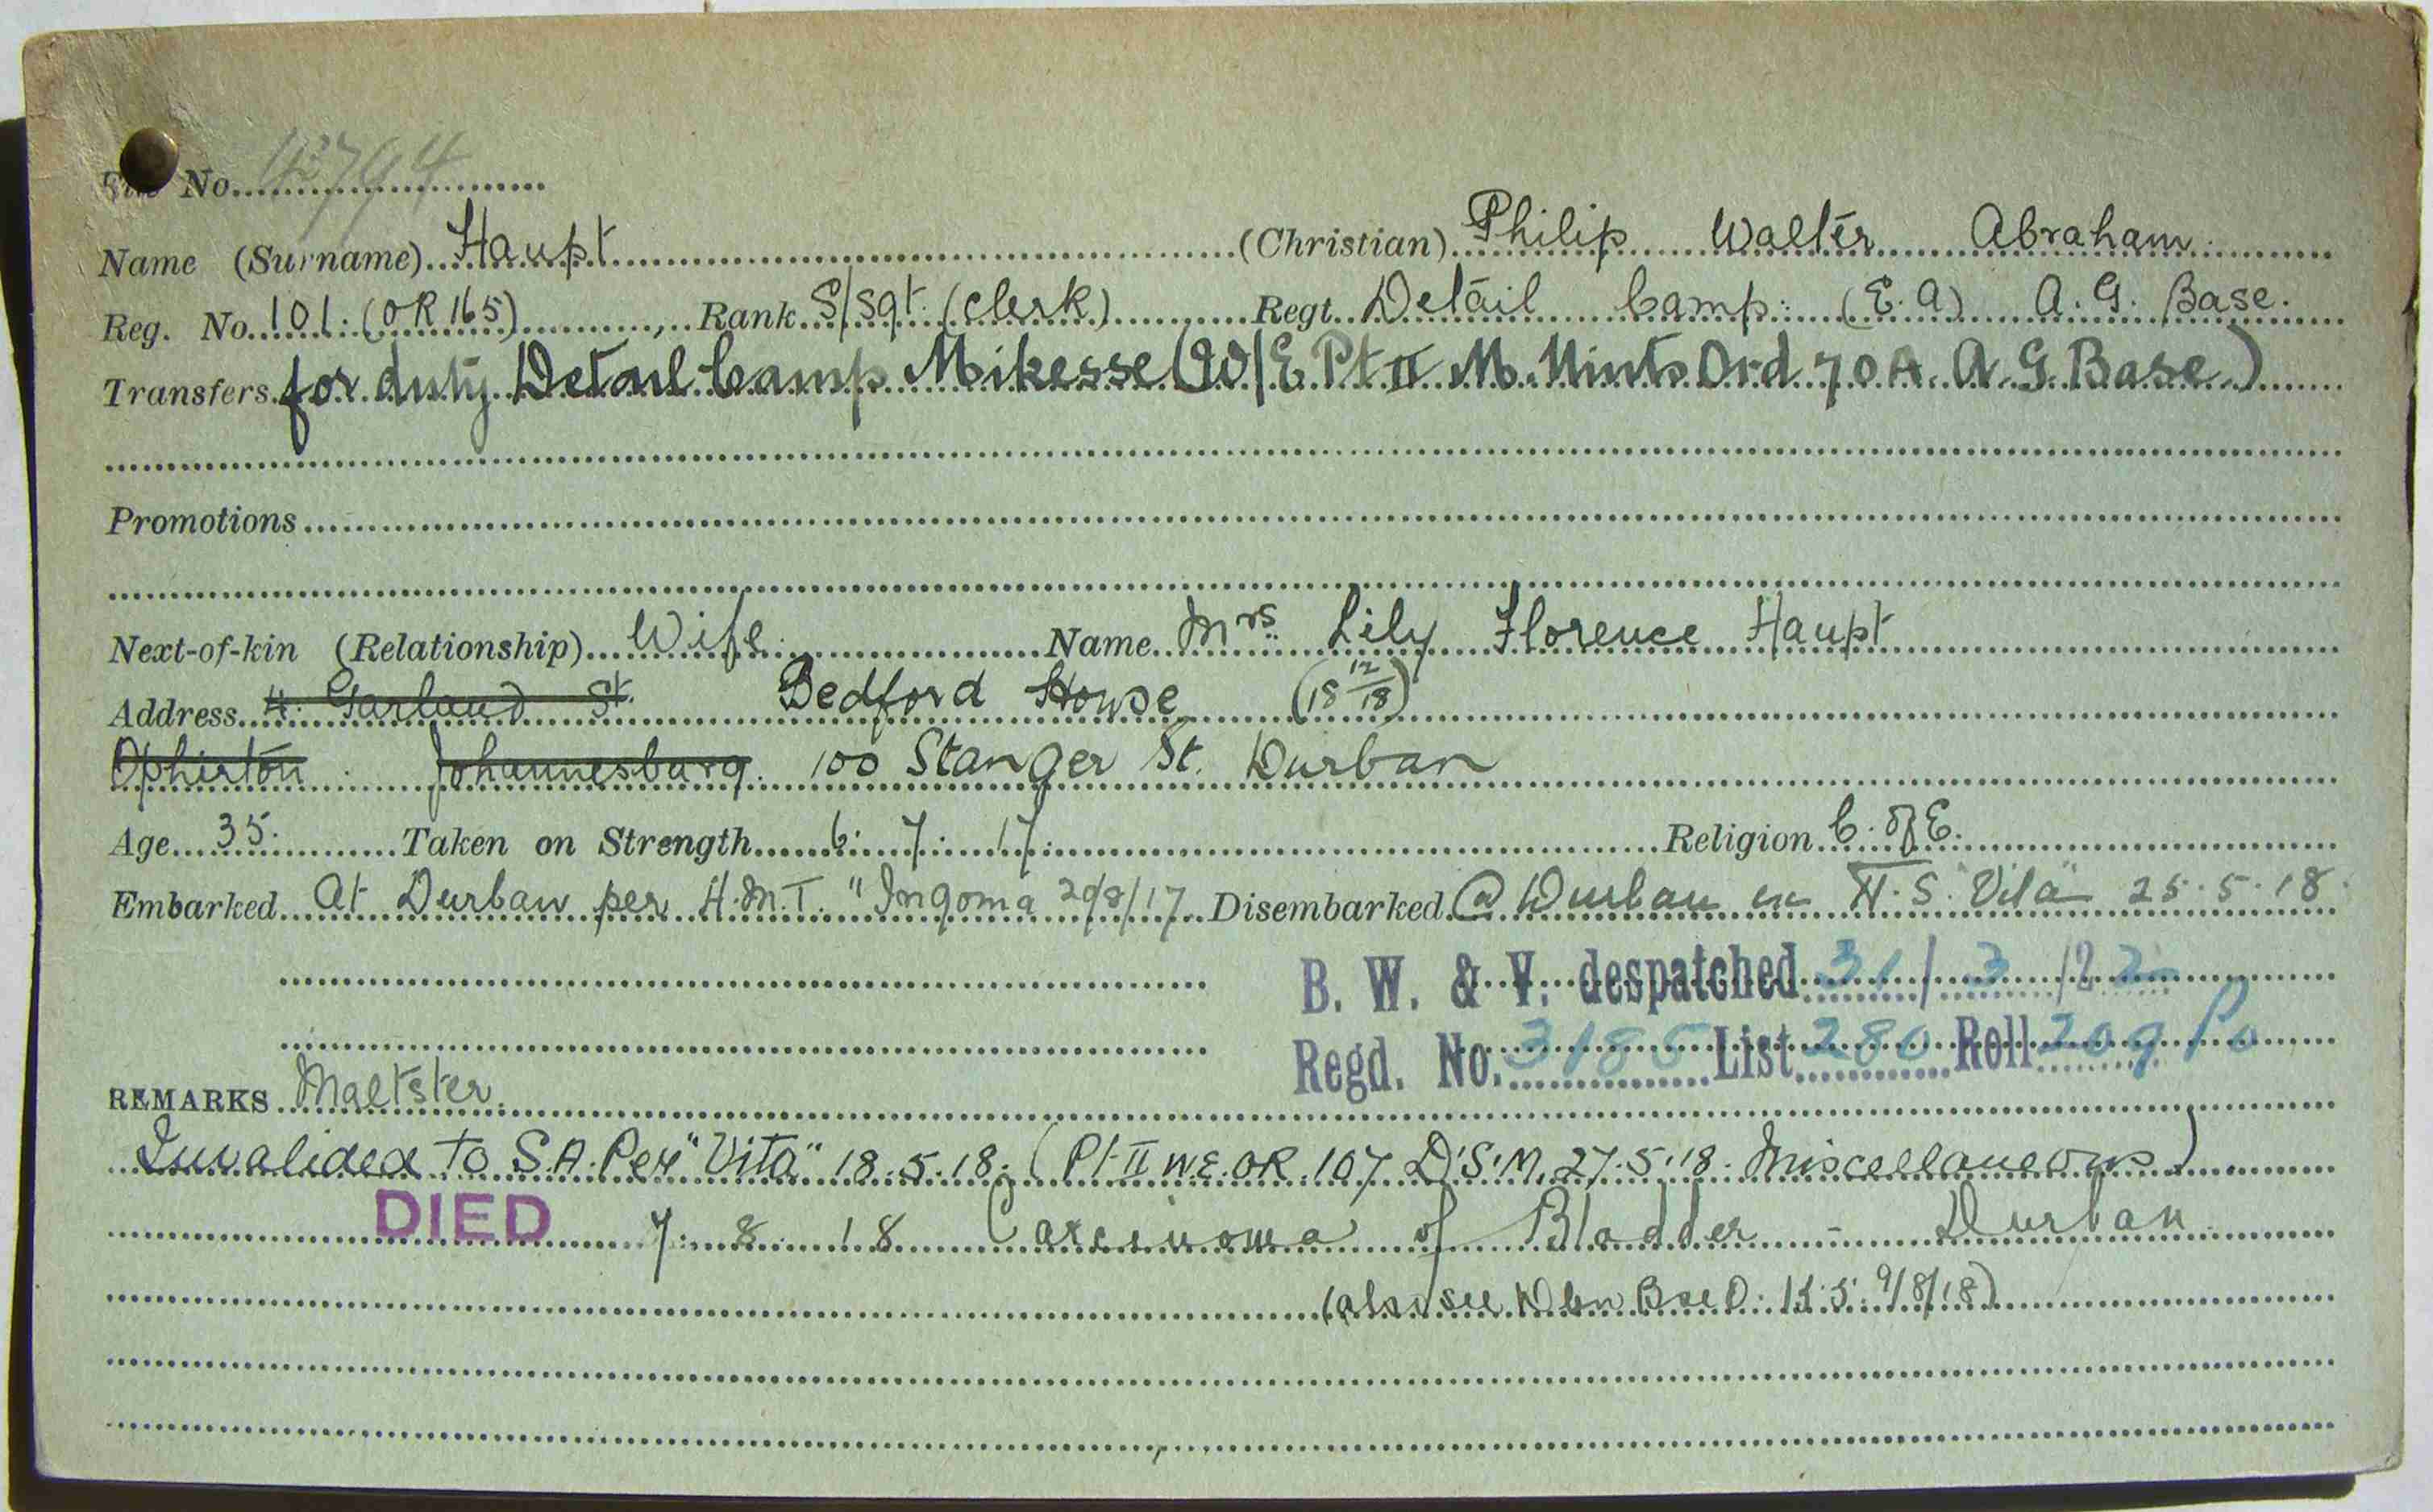 File No. 42794
Name (Surname) Haupt (Christian) Philip Walter Abraham
Reg. No. 101. (OR 165) Rank S/Sgt. (Clerk) Regt. Detail Camp: (E.A) A.G. Base.
Transfers for duty Detail Camp Mikesse (W/E Pt II M. Mints Ord 70A. A.G. Base)
Promotions
Next-of-kin (Relationship) Wife. Name Mrs. Lily Florence Haupt
Address 4. Garland St. Bedford House (18 12/18)
Ophirton Johannesburg. 100 Stanger St. Durban
Age 35. Taken on Strength 6. 7. 17. Religion C. of E.
Embarked At Durban per H.M.T. "Ingoma 20/8/17 Disembarked @ Durban ex H.S. "Vita" 25.5.18.
B. W. & V. despatched 31/3/22
Regd. No. 3185 List 280 Roll 209 Po
REMARKS Maltster.
Invalided to S.A. Per "Vita" 18.5.18. (Pt II W.E. OR 107 D.S.M. 27.5.18. Miscellaneous)
DIED 7. 8. 18 Carcinoma of Bladder - Durban.
(also see Dbn 9/8/18)